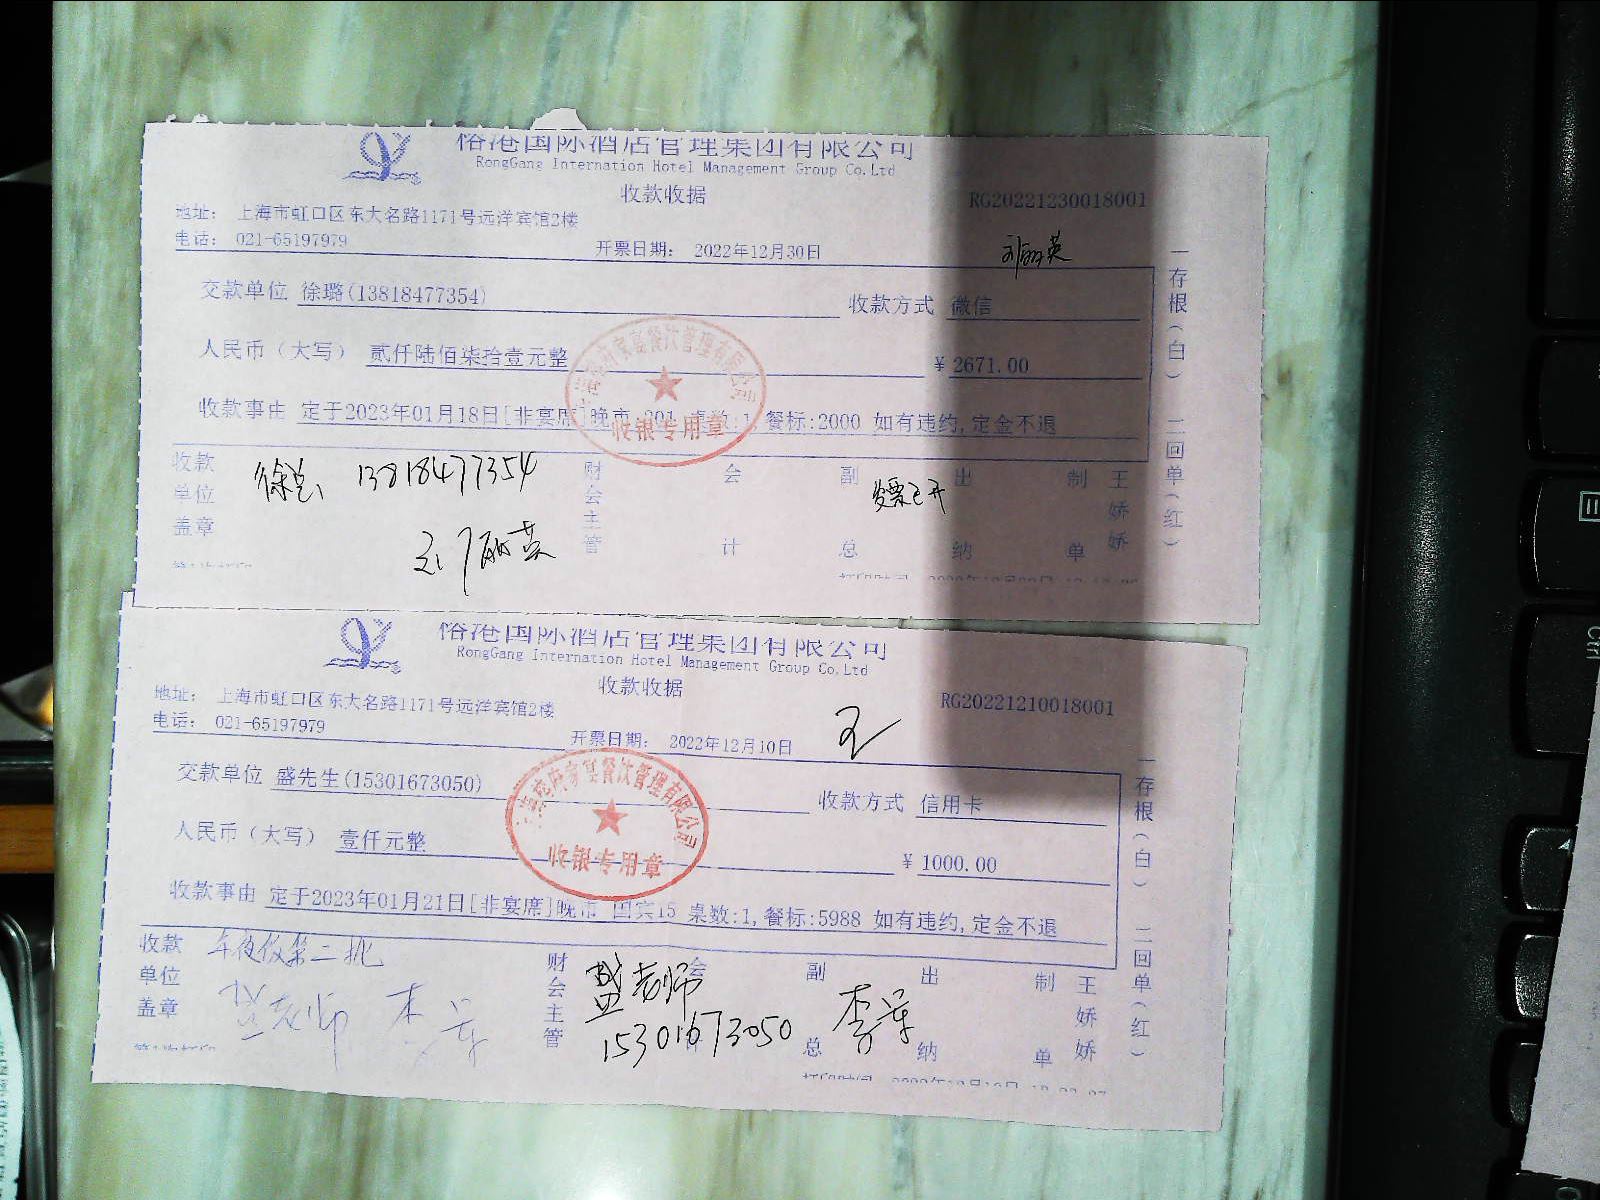 俗港国际酒店管理集团有限公司
RongGang Internation Hotel Management Group Co.Ltd
收款收据
RG20221230018001
地址： 上海市虹口区东大名路1171号远洋宾馆2楼
电话： 021-65197979
开票日期： 2022年12月30日
刘丽英
交款单位 徐璐(13818477354)
收款方式 微信
人民币（大写） 贰仟陆佰柒拾壹元整
¥ 2671.00
收款事由 定于2023年01月18日[非宴席]晚市 201 桌数:1,餐标:2000 如有违约,定金不退
收银专用章
收款单位盖章
徐总 13818477354
刘丽英
财会主管
会计
副总
发票已开
出纳
制单
王娇娇
一存根（白） 二回单（红）
俗港国际酒店管理集团有限公司
RongGang Internation Hotel Management Group Co.Ltd
收款收据
RG20221210018001
地址： 上海市虹口区东大名路1171号远洋宾馆2楼
电话： 021-65197979
开票日期： 2022年12月10日
王
交款单位 盛先生(15301673050)
收款方式 信用卡
人民币（大写） 壹仟元整
¥ 1000.00
收款事由 定于2023年01月21日[非宴席]晚市 国宾15 桌数:1,餐标:5988 如有违约,定金不退
收银专用章
收款单位盖章
年夜饭第二批
盛老师 李军
财会主管
会计
盛老师
15301673050
副总
李军
出纳
制单
王娇娇
一存根（白） 二回单（红）
Ctrl